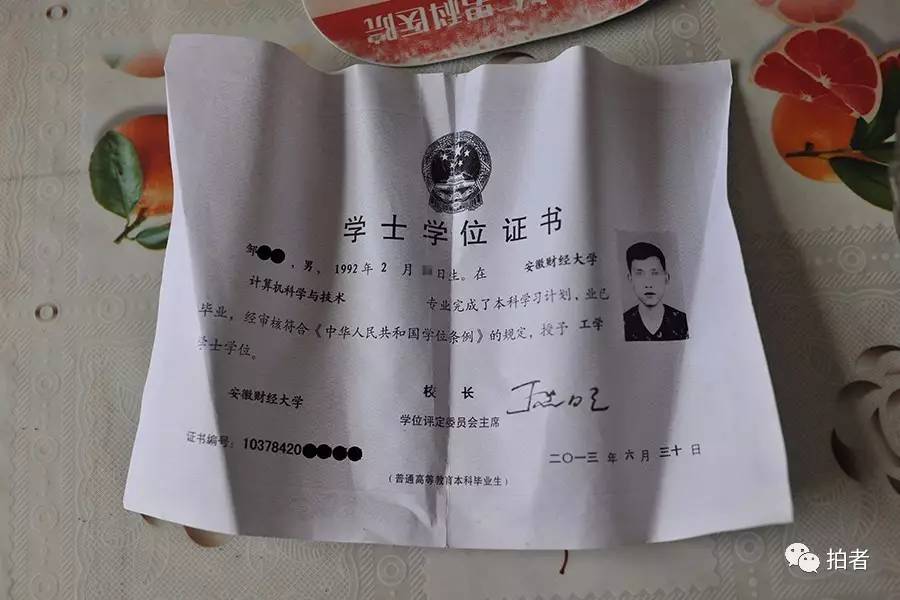 男科医院
学士学位证书
邹●●，男，1992年2月 日生。在 安徽财经大学
计算机科学与技术 专业完成了本科学习计划，业已
毕业，经审核符合《中华人民共和国学位条例》的规定，授予 工学
学士学位。
安徽财经大学 校 长
学位评定委员会主席
证书编号：10378420●●●●
二〇一三年六月三十日
（普通高等教育本科毕业生）
拍者